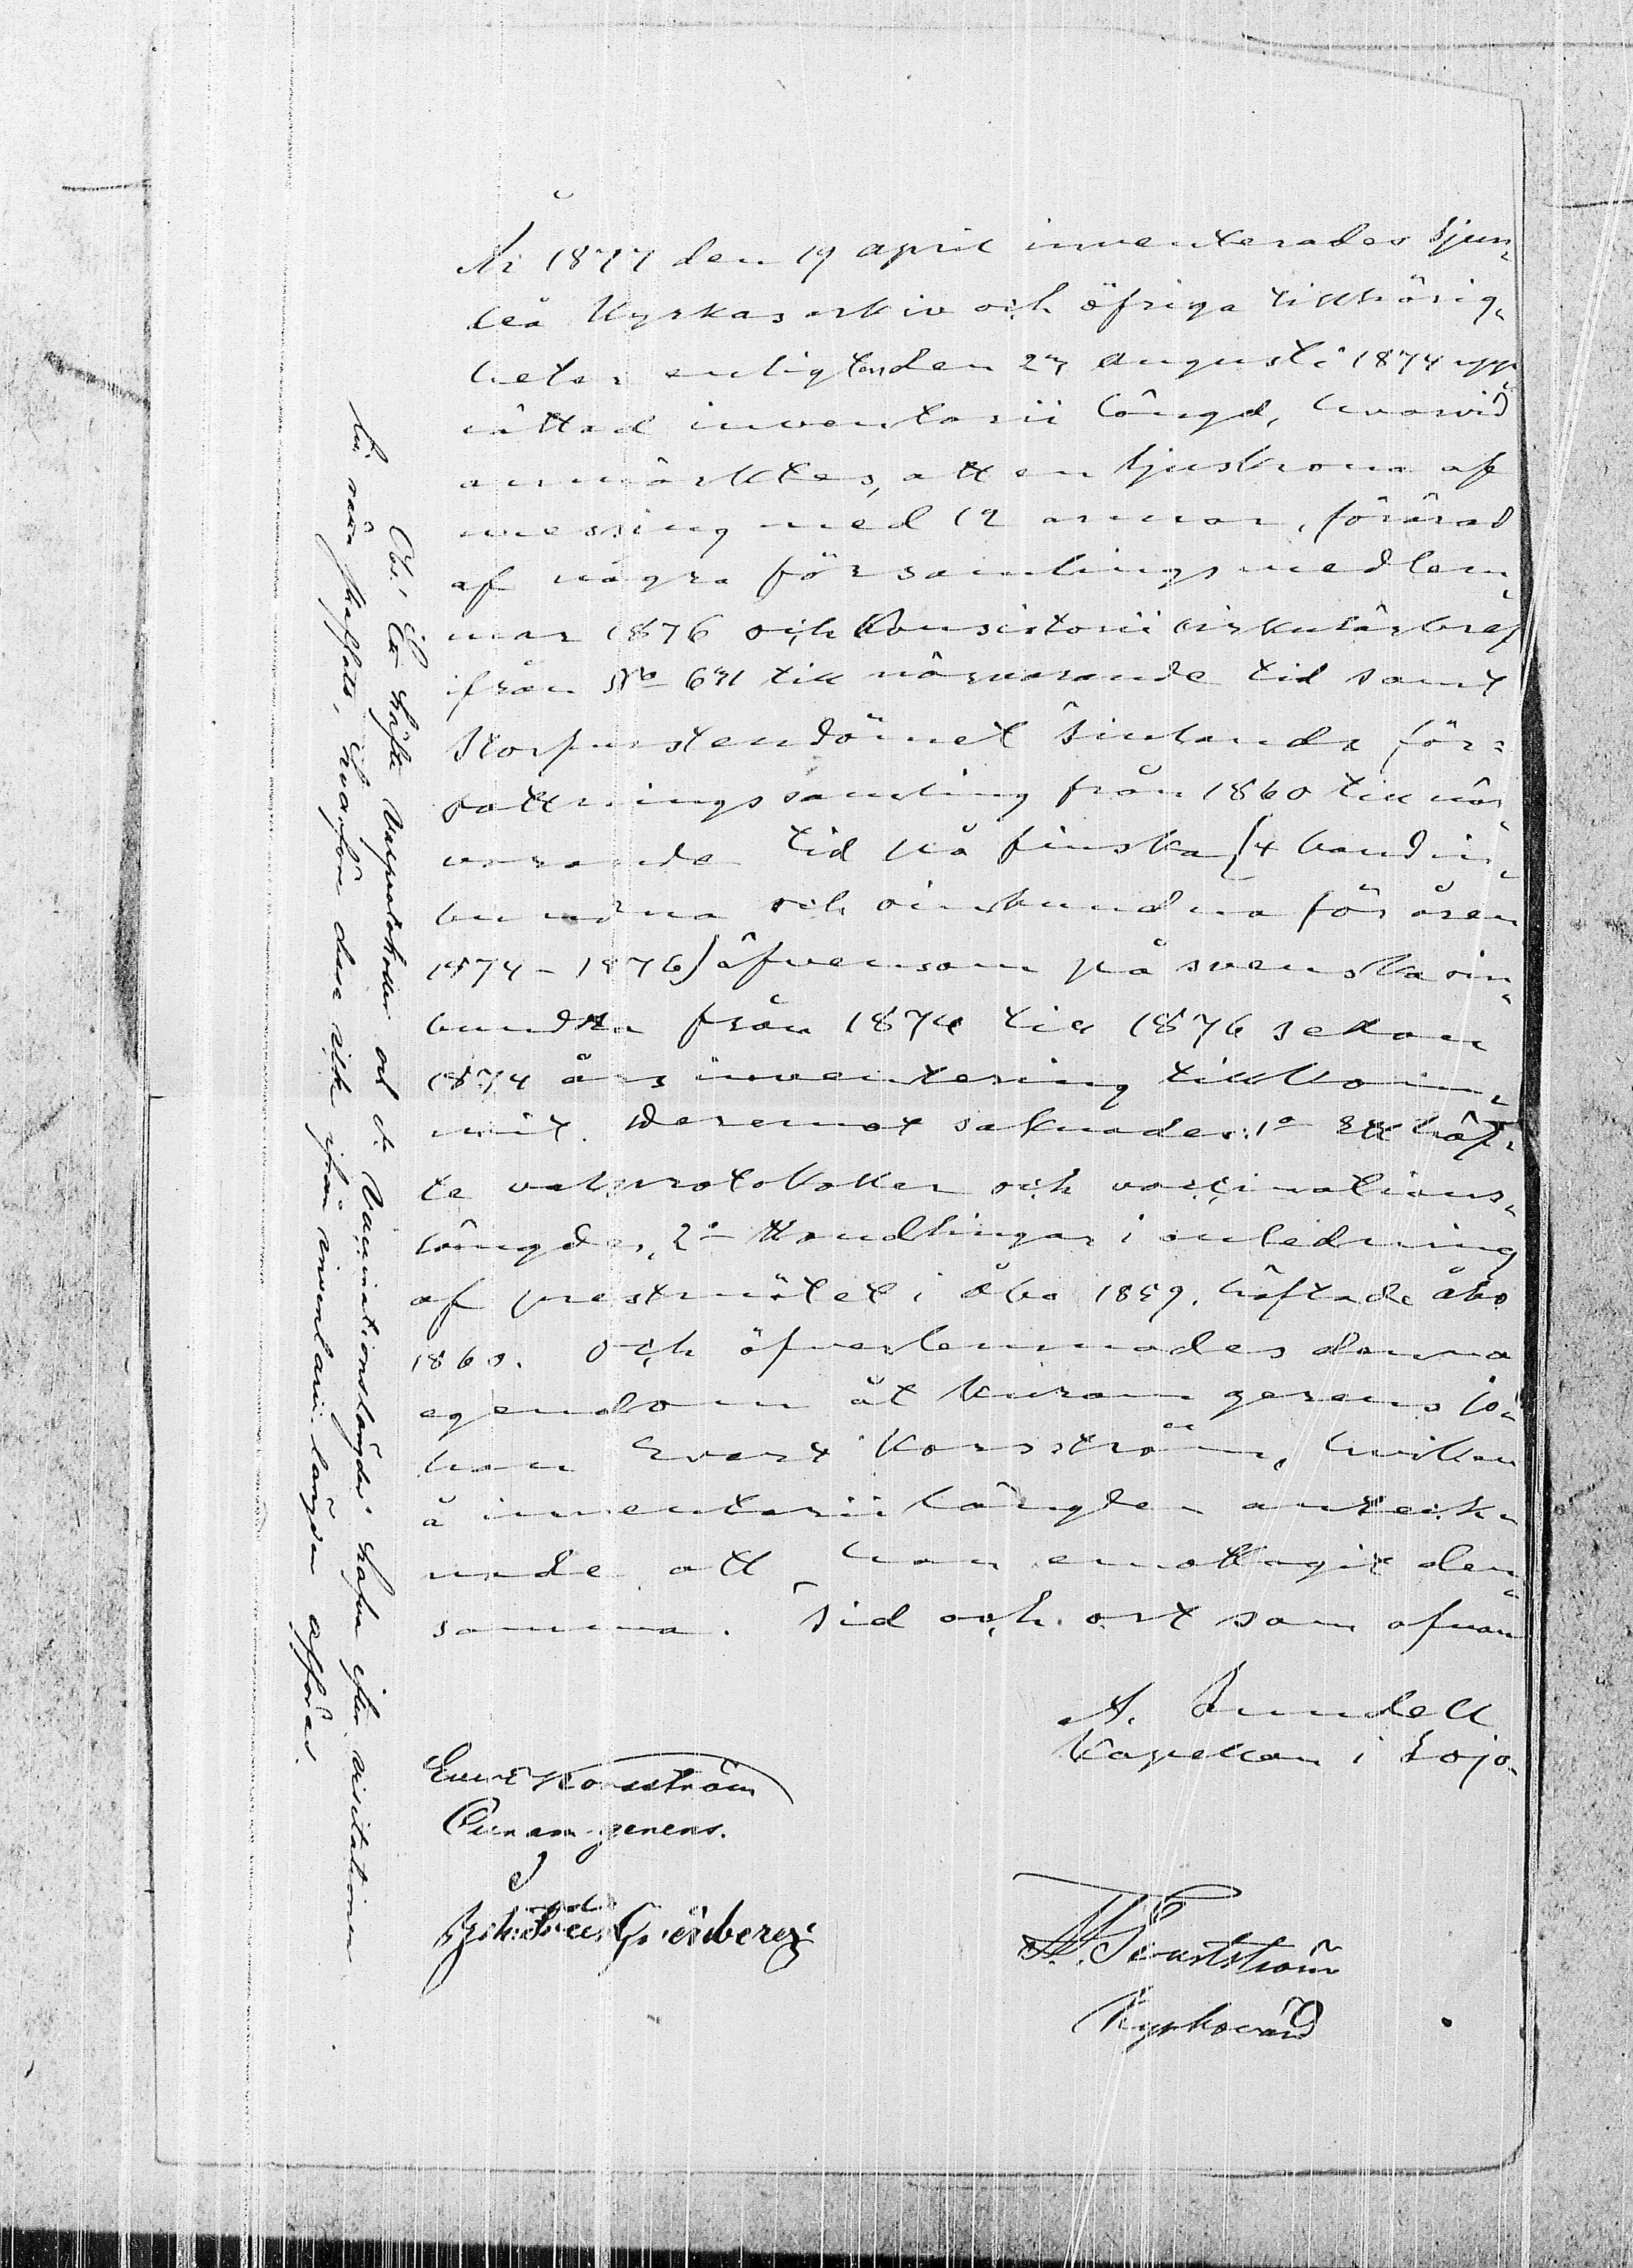 År 1877 den 19 April inventerades Sjun-
deå Kyrkas arkiv och öfriga tillhörig-
heter enligt den 27 Augusti 1874 upp-
rättad inventarii längd, hvarvid
anmärktes, att en ljuskrona af
messing med 12 armar, förärad
af några församlingsmedlem-
mar 1876 och Konsistorii cirkulärbref
ifrån No 671 till närvarande tid samt
Storfurstendömet Finlands för-
fattningssamling från 1860 till när-
varande tid på finska (4 band in-
bundna och oinbundna för åren
1874-1876) äfvensom på svenska oin-
bundna från 1874 till 1876 sedan
1874 års inventering tillkom-
mit. Deremot saknades: 1o Ett häf-
te valprotokoller och vaccinations-
längder, 2o Handlingar i anledning
af prestmötet i Åbo 1859, häftade Åbo
1860. Och öfverlemnades denna
egendom åt kuram gerens Jo-
han Evert Korsström, hvilken
å inventarii längden anteck-
nade att han emottagit den-
samma. Tid och ort som ofvan
A. Lindell
Kapellan i Lojo.
Evert Korsström
Curam gerens.
Grönberg
Kyrkovärd
Obs. Ett häfte Valprotokoller och de Vaccinationslängder hafva efter visitationen
till rätta skaffats, hvarföre dessa icke ifrån inventarii längden afföras.